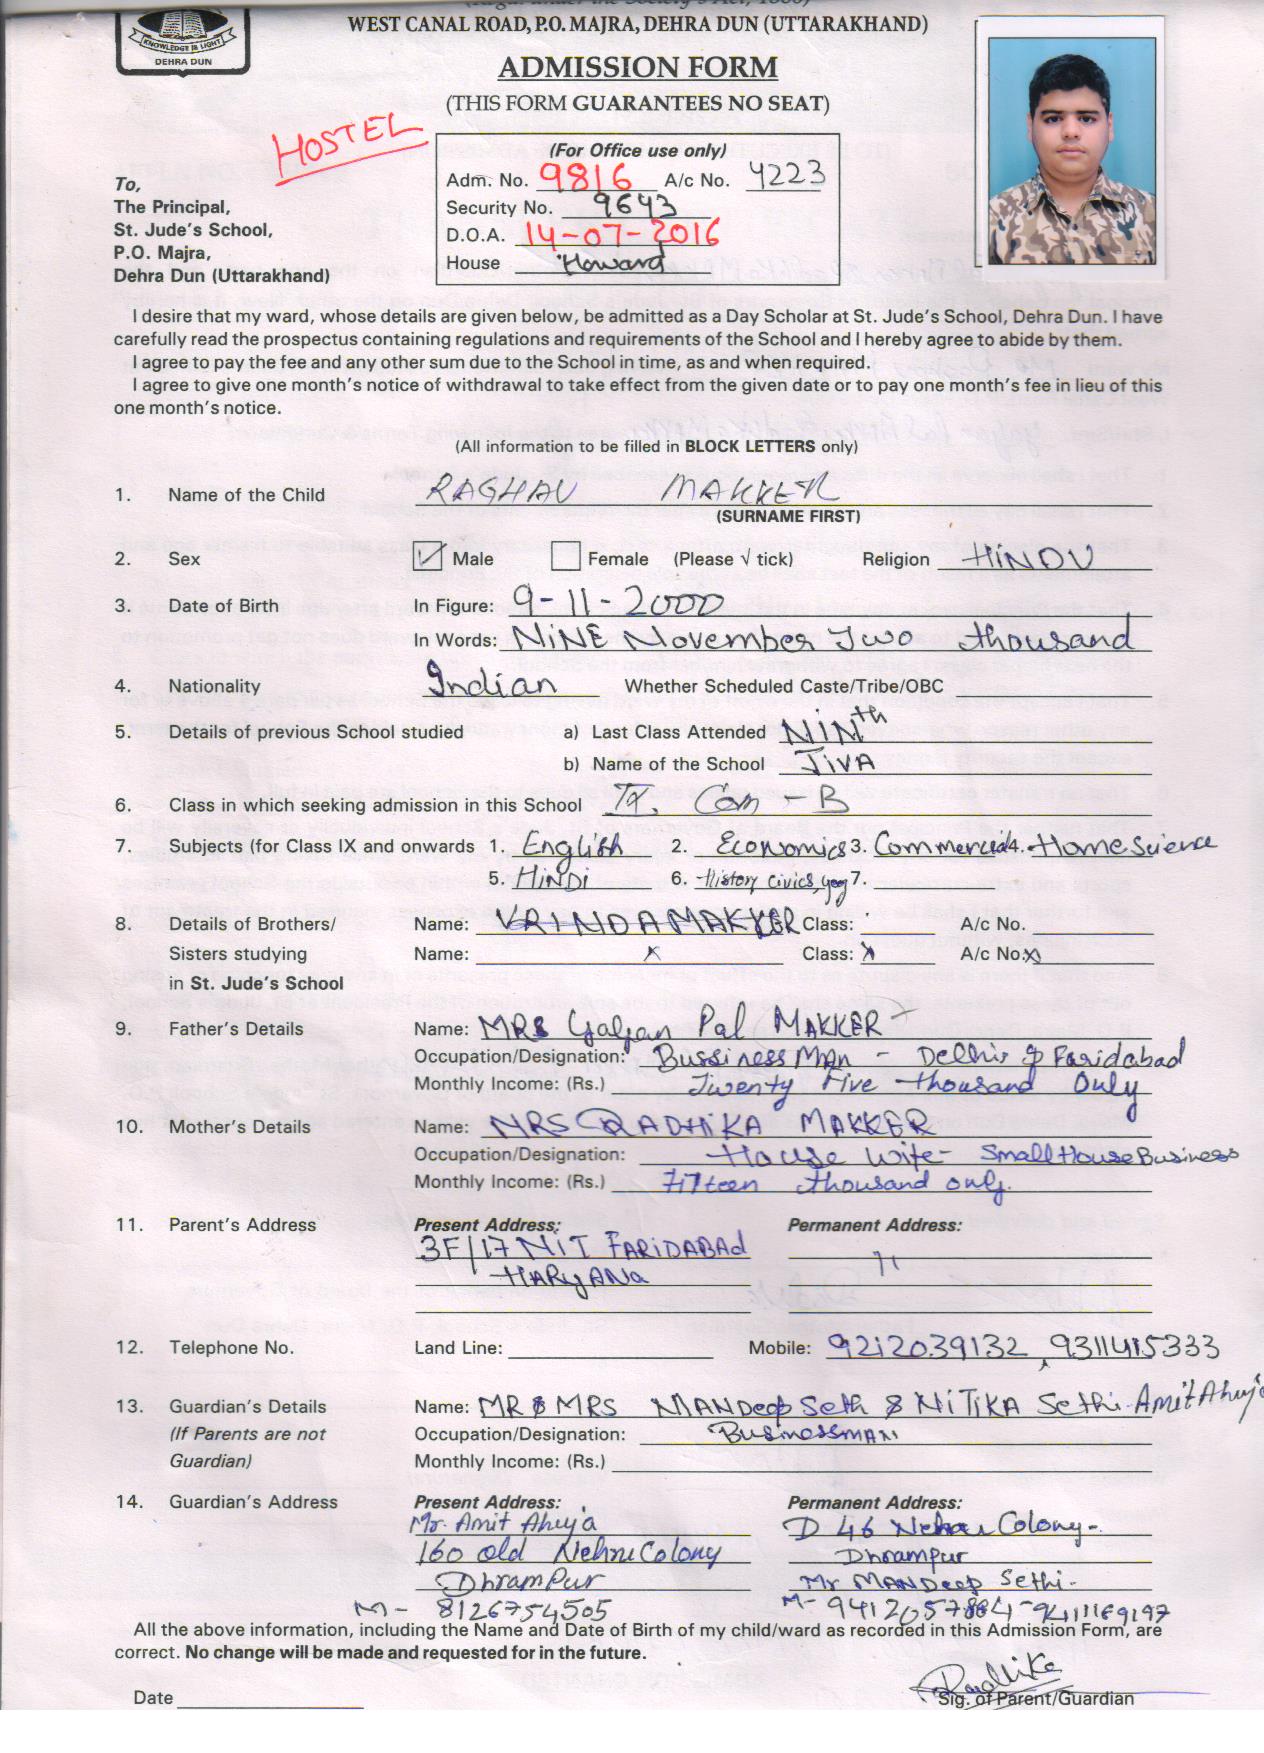 WEST CANAL ROAD, P.O. MAJRA, DEHRA DUN (UTTARAKHAND)
KNOWLEDGE IS LIGHT
DEHRA DUN
ADMISSION FORM
(THIS FORM GUARANTEES NO SEAT)
HOSTEL
(For Office use only)
Adm. No. 9816 A/c No. 4223
Security No. 9643
D.O.A. 14-07-2016
House Howard
To,
The Principal,
St. Jude's School,
P.O. Majra,
Dehra Dun (Uttarakhand)
I desire that my ward, whose details are given below, be admitted as a Day Scholar at St. Jude's School, Dehra Dun. I have
carefully read the prospectus containing regulations and requirements of the School and I hereby agree to abide by them.
I agree to pay the fee and any other sum due to the School in time, as and when required.
I agree to give one month's notice of withdrawal to take effect from the given date or to pay one month's fee in lieu of this
one month's notice.
(All information to be filled in BLOCK LETTERS only)
1. Name of the Child RAGHAV MAKKER
(SURNAME FIRST)
2. Sex Male Female (Please √ tick) Religion HINDU
3. Date of Birth In Figure: 9-11-2000
In Words: NINE November Two thousand
4. Nationality Indian Whether Scheduled Caste/Tribe/OBC
5. Details of previous School studied a) Last Class Attended NINth
b) Name of the School JIVA
6. Class in which seeking admission in this School Com - B
7. Subjects (for Class IX and onwards 1. English 2. Economics 3. Commercial 4. Home Science
5. HINDI 6. History Civics, 7.
8. Details of Brothers/ Name: VRINDA MAKKER Class: A/c No.
Sisters studying Name: x Class: x A/c No. x
in St. Jude's School
9. Father's Details Name: MRS Pal MAKKER
Occupation/Designation: Bussiness Man - Delhi & Faridabad
Monthly Income: (Rs.) Twenty Five thousand Only
10. Mother's Details Name: MRS RADHIKA MAKKER
Occupation/Designation: House Wife - Small House Business
Monthly Income: (Rs.) Fifteen thousand only.
11. Parent's Address Present Address: Permanent Address:
3F/17 NIT FARIDABAd
HARYANa "
12. Telephone No. Land Line: Mobile: 9212039132, 9311415333
13. Guardian's Details Name: MR & MRS MANDeep Seth & NITIKA Sethi - Amit Ahuja
(If Parents are not Occupation/Designation: BusinessMAN
Guardian) Monthly Income: (Rs.)
14. Guardian's Address Present Address: Permanent Address:
Mr. Amit Ahuja D 46 Colony -
160 old Nehru Colony Dhrampur
DhramPur Mr MANDeep Sethi -
M- 8126754505 M- 9411169197
All the above information, including the Name and Date of Birth of my child/ward as recorded in this Admission Form, are
correct. No change will be made and requested for in the future.
Radhika
Date Sig. of Parent/Guardian